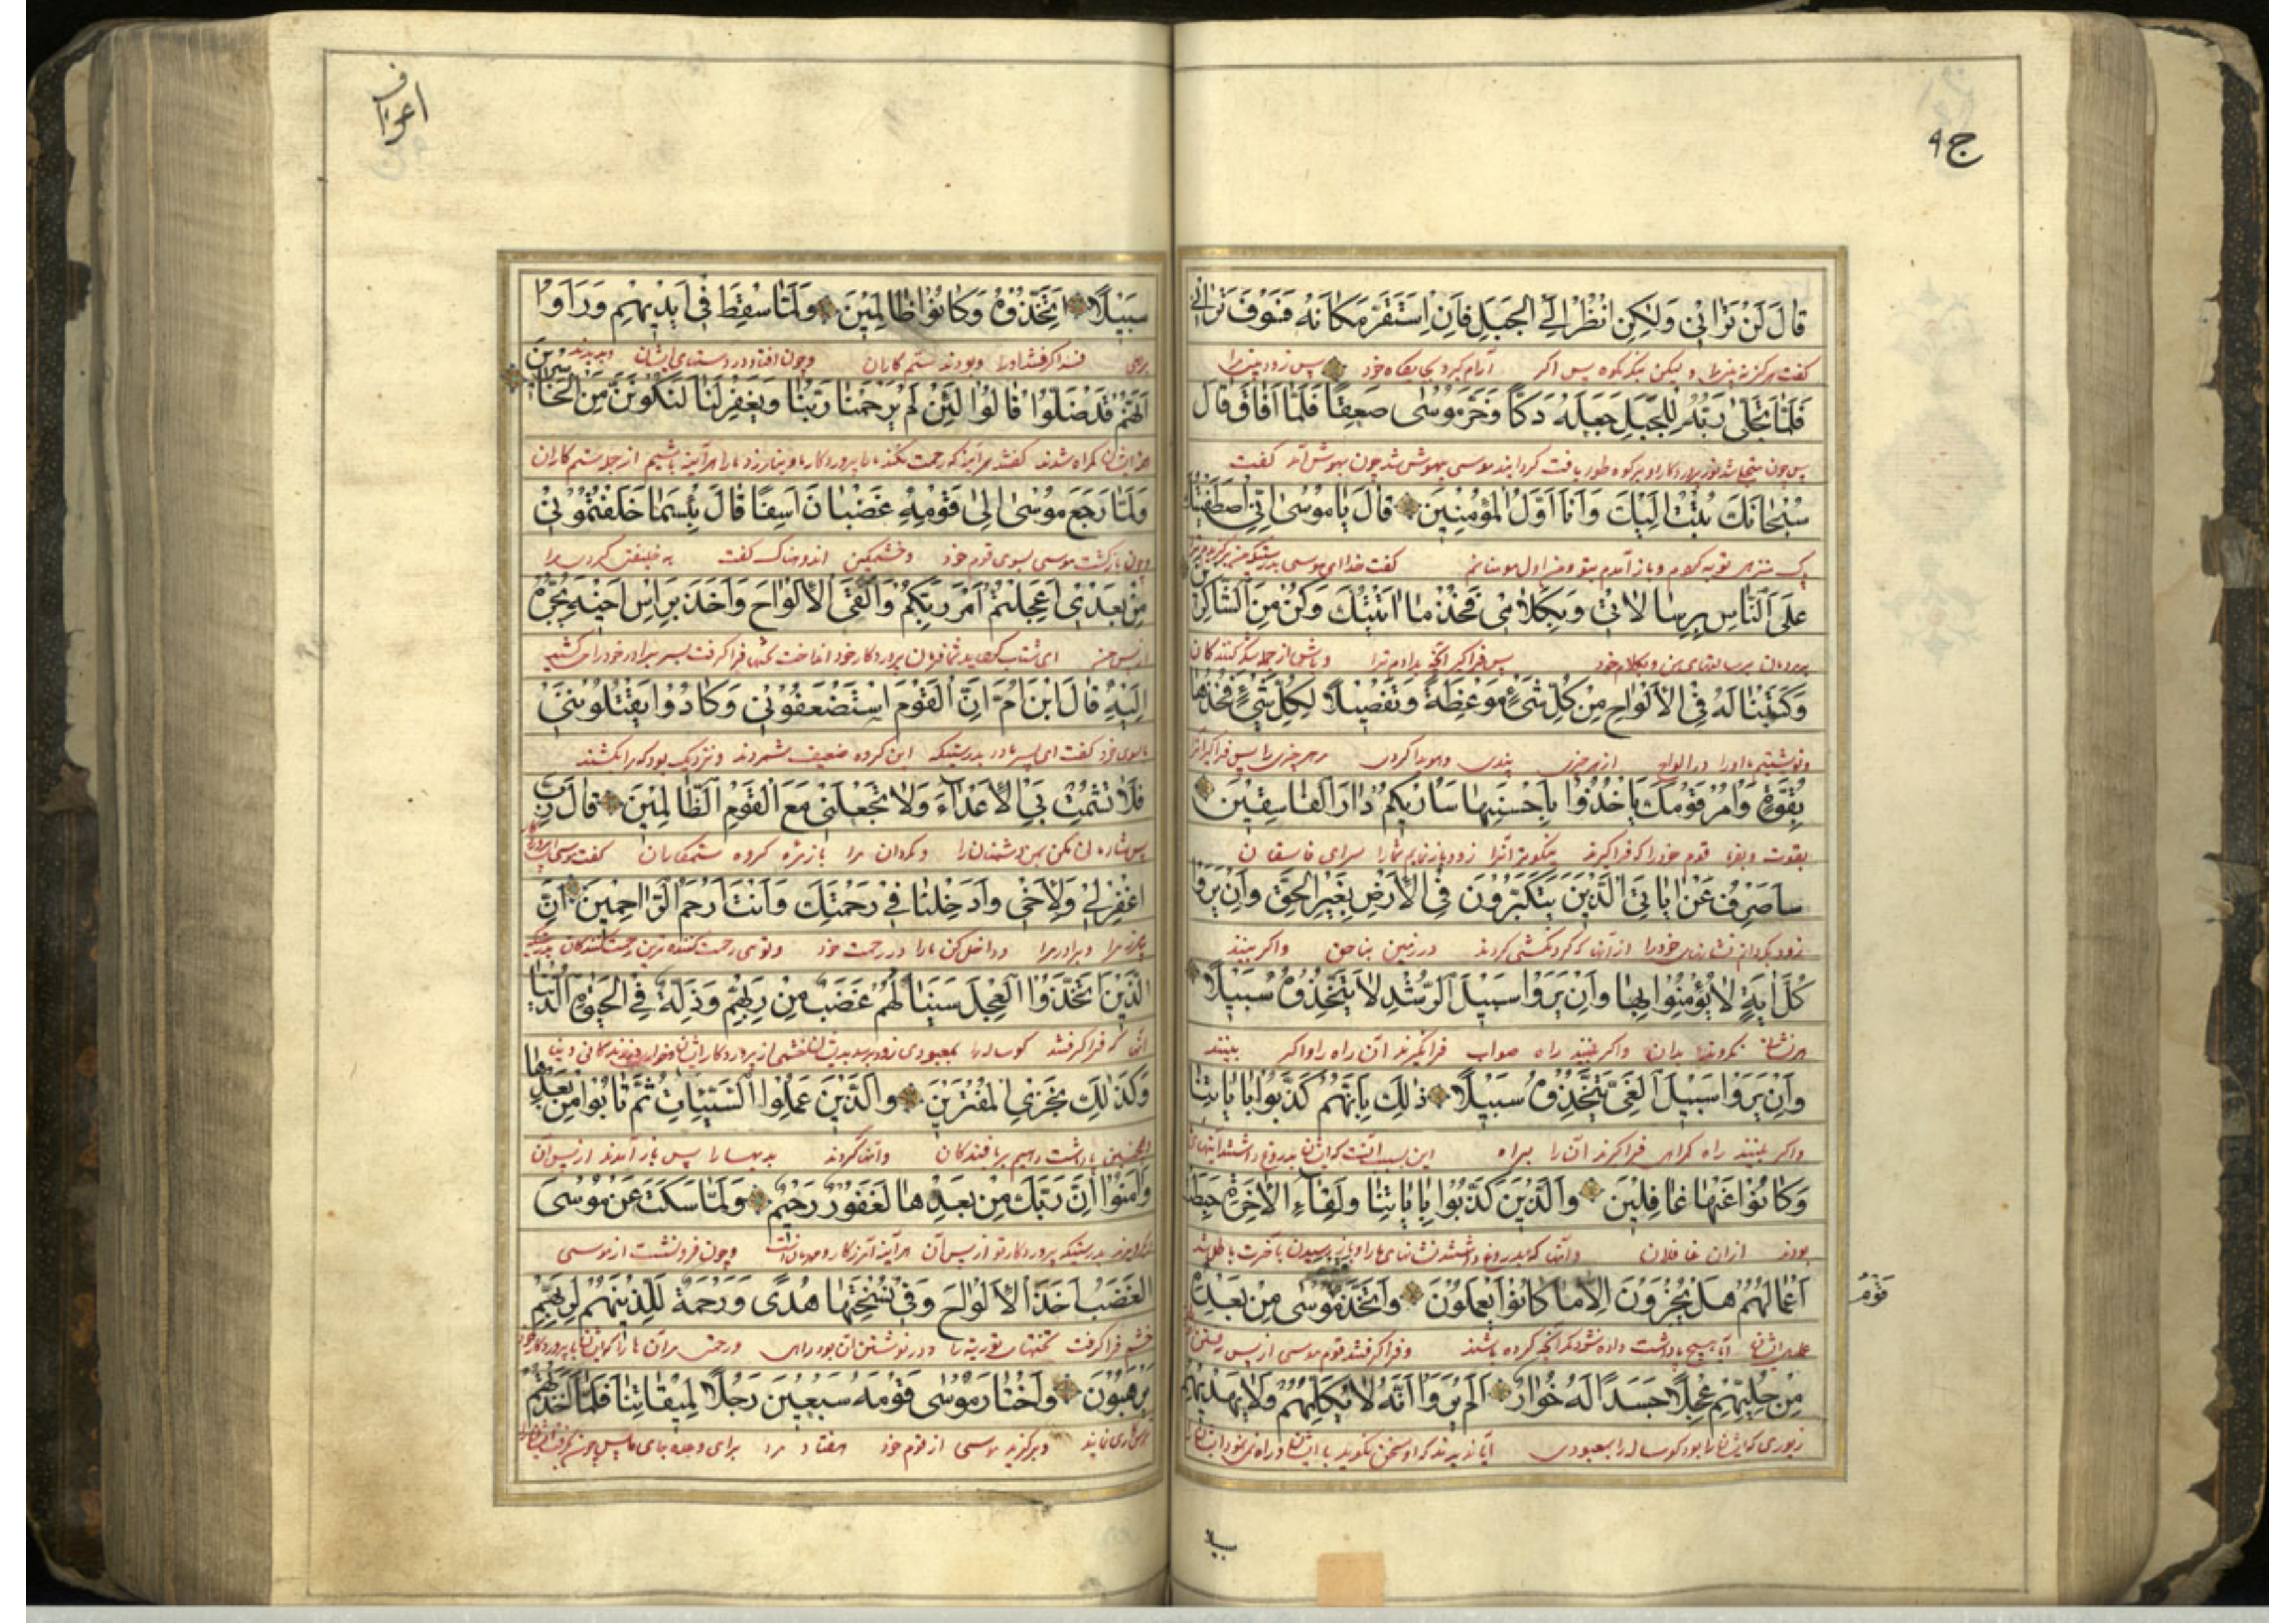 ج ٩
قَالَ لَنْ تَرَانِي وَلٰكِنِ انْظُرْ اِلَى الْجَبَلِ فَاِنِ اسْتَقَرَّ مَكَانَهُ فَسَوْفَ تَرَانِي
گفت هرگز نه بینی مرا و لیکن بنگر بکوه پس اگر آرام گیرد بجایگاه خود پس زود بینی مرا
فَلَمَّا تَجَلّٰى رَبُّهُ لِلْجَبَلِ جَعَلَهُ دَكًّا وَخَرَّ مُوسٰى صَعِقًا فَلَمَّا اَفَاقَ قَالَ
پس چون موسی بیهوش شد چون بهوش آمد گفت
سُبْحَانَكَ تُبْتُ اِلَيْكَ وَاَنَا اَوَّلُ الْمُؤْمِنِينَ قَالَ يَا مُوسٰى اِنِّي اصْطَفَيْتُكَ
توبه کردم و باز آمدم بتو و من اول مومنانم گفت خدا ای موسی بدرستیکه من
عَلَى النَّاسِ بِرِسَالَاتِي وَبِكَلَامِي فَخُذْ مَا اٰتَيْتُكَ وَكُنْ مِنَ الشَّاكِرِينَ
بر مردمان برسالتهای من و بکلام خود پس فراگیر آنچه بدادم ترا و باش از جمله شکر کنندگان
وَكَتَبْنَا لَهُ فِي الْاَلْوَاحِ مِنْ كُلِّ شَيْءٍ مَوْعِظَةً وَتَفْصِيلًا لِكُلِّ شَيْءٍ فَخُذْهَا
و نوشتیم ما او را در الواح از هر چیزی پندی و هویدا کردن هر چیزی را پس فراگیر آنرا
بِقُوَّةٍ وَأْمُرْ قَوْمَكَ يَاْخُذُوا بِاَحْسَنِهَا سَاُرِيكُمْ دَارَ الْفَاسِقِينَ
بقوت و بفرما قوم خود را که فراگیرند نیکوتر آنرا زود باز نمایم شما را سرای فاسقان
سَاَصْرِفُ عَنْ اٰيَاتِيَ الَّذِينَ يَتَكَبَّرُونَ فِي الْاَرْضِ بِغَيْرِ الْحَقِّ وَاِنْ يَرَوْا
زود بگردانم نشانهای خود را از آنها که گردنکشی کردند در زمین بناحق و اگر بینند
كُلَّ اٰيَةٍ لَا يُؤْمِنُوا بِهَا وَاِنْ يَرَوْا سَبِيلَ الرُّشْدِ لَا يَتَّخِذُوهُ سَبِيلًا
هر نشانه نگروند بدان و اگر بینند راه صواب فرا نگیرند آن راه را و اگر بینند
وَاِنْ يَرَوْا سَبِيلَ الْغَيِّ يَتَّخِذُوهُ سَبِيلًا ذٰلِكَ بِاَنَّهُمْ كَذَّبُوا بِاٰيَاتِنَا
و اگر بینند راه گمراهی فراگیرند آن را براه این بسبب آنست که ایشان بدروغ داشتند آیتهای
وَكَانُوا عَنْهَا غَافِلِينَ وَالَّذِينَ كَذَّبُوا بِاٰيَاتِنَا وَلِقَاءِ الْاٰخِرَةِ حَبِطَتْ
بودند از آن غافلان و آنها که بدروغ داشتند نشانهای ما را و باز رسیدن بآخرت باطل شد
اَعْمَالُهُمْ هَلْ يُجْزَوْنَ اِلَّا مَا كَانُوا يَعْمَلُونَ وَاتَّخَذَ مُوسٰى مِنْ بَعْدِهِ
قَوْمُ
عملهای ایشان آیا هیچ پاداشت داده شوند مگر آنچه کرده باشند و فراگرفتند قوم موسی از پس رفتن
مِنْ حُلِيِّهِمْ عِجْلًا جَسَدًا لَهُ خُوَارٌ اَلَمْ يَرَوْا اَنَّهُ لَا يُكَلِّمُهُمْ وَلَا يَهْدِيهِمْ
زیوری که ایشانرا بود گوساله را بمعبودی آیا ندیدند که او سخن نگوید با ایشان و راه ننمود ایشانرا
سبيلا
اعراف
سَبِيلًا اِتَّخَذُوهُ وَكَانُوا ظَالِمِينَ وَلَمَّا سُقِطَ فِي اَيْدِيهِمْ وَرَاَوْا
براهی فراگرفتند او را و بودند ستمکاران و چون افتاد در دستهای ایشان و بدیدند
اَنَّهُمْ قَدْ ضَلُّوا قَالُوا لَئِنْ لَمْ يَرْحَمْنَا رَبُّنَا وَيَغْفِرْ لَنَا لَنَكُونَنَّ مِنَ الْخَاسِرِينَ
گمراه شدند گفتند هر آینه که رحمت نکند ما را پروردگار ما و نیامرزد ما را هر آینه باشیم از جمله ستمکاران
وَلَمَّا رَجَعَ مُوسٰى اِلٰى قَوْمِهِ غَضْبَانَ اَسِفًا قَالَ بِئْسَمَا خَلَفْتُمُونِي
و چون بازگشت موسی بسوی قوم خود و خشمگین اندوهناک گفت بد خلیفتی کردید مرا
مِنْ بَعْدِي اَعَجِلْتُمْ اَمْرَ رَبِّكُمْ وَاَلْقَى الْاَلْوَاحَ وَاَخَذَ بِرَاْسِ اَخِيهِ يَجُرُّهُ
از پس من ای شتاب کردید شما فرمان پروردگار خود انداخت تختها فراگرفت بسر برادر خود را می کشید
اِلَيْهِ قَالَ ابْنَ اُمَّ اِنَّ الْقَوْمَ اسْتَضْعَفُونِي وَكَادُوا يَقْتُلُونَنِي
بسوی خود گفت ای پسر مادر بدرستیکه این گروه ضعیف شمردند و نزدیک بود که مرا بکشند
فَلَا تُشْمِتْ بِيَ الْاَعْدَاءَ وَلَا تَجْعَلْنِي مَعَ الْقَوْمِ الظَّالِمِينَ قَالَ رَبِّ
پس شادمان مکن بمن دشمنانرا و مگردان مرا گروه ستمکاران گفت موسی ای پروردگار
اغْفِرْ لِي وَلِاَخِي وَاَدْخِلْنَا فِي رَحْمَتِكَ وَاَنْتَ اَرْحَمُ الرَّاحِمِينَ اِنَّ
بیامرز مرا و برادر مرا و داخل کن ما را در رحمت خود و توئی رحمت کننده ترین رحمت کنندگان بدرستیکه
الَّذِينَ اتَّخَذُوا الْعِجْلَ سَيَنَالُهُمْ غَضَبٌ مِنْ رَبِّهِمْ وَذِلَّةٌ فِي الْحَيٰوةِ الدُّنْيَا
آنها که فراگرفتند گوساله را بمعبودی زود برسد بدیشان خشمی از پروردگار ایشان و خواری در زندگانی دنیا
وَكَذٰلِكَ نَجْزِي الْمُفْتَرِينَ وَالَّذِينَ عَمِلُوا السَّيِّئَاتِ ثُمَّ تَابُوا مِنْ بَعْدِهَا
و همچنین پاداشت دهیم بر بافندگان و آنها که کردند بدیها را پس باز آمدند از پس آن
وَاٰمَنُوا اِنَّ رَبَّكَ مِنْ بَعْدِهَا لَغَفُورٌ رَحِيمٌ وَلَمَّا سَكَتَ عَنْ مُوسَى
بدرستیکه پروردگار تو از پس آن هر آینه آمرزگار و مهربان است و چون فرو نشست از موسی
الْغَضَبُ اَخَذَ الْاَلْوَاحَ وَفِي نُسْخَتِهَا هُدًى وَرَحْمَةٌ لِلَّذِينَ هُمْ لِرَبِّهِمْ
خشم فراگرفت تختهای توریة را و در نوشتن آن بود راهی و رحمتی مر آن ها را که ایشان با پروردگار خود
يَرْهَبُونَ وَاخْتَارَ مُوسٰى قَوْمَهُ سَبْعِينَ رَجُلًا لِمِيقَاتِنَا فَلَمَّا اَخَذَتْهُمُ
و برگزید موسی از قوم خود هفتاد مرد برای وعده جای ما پس چون بگرفت ایشانرا